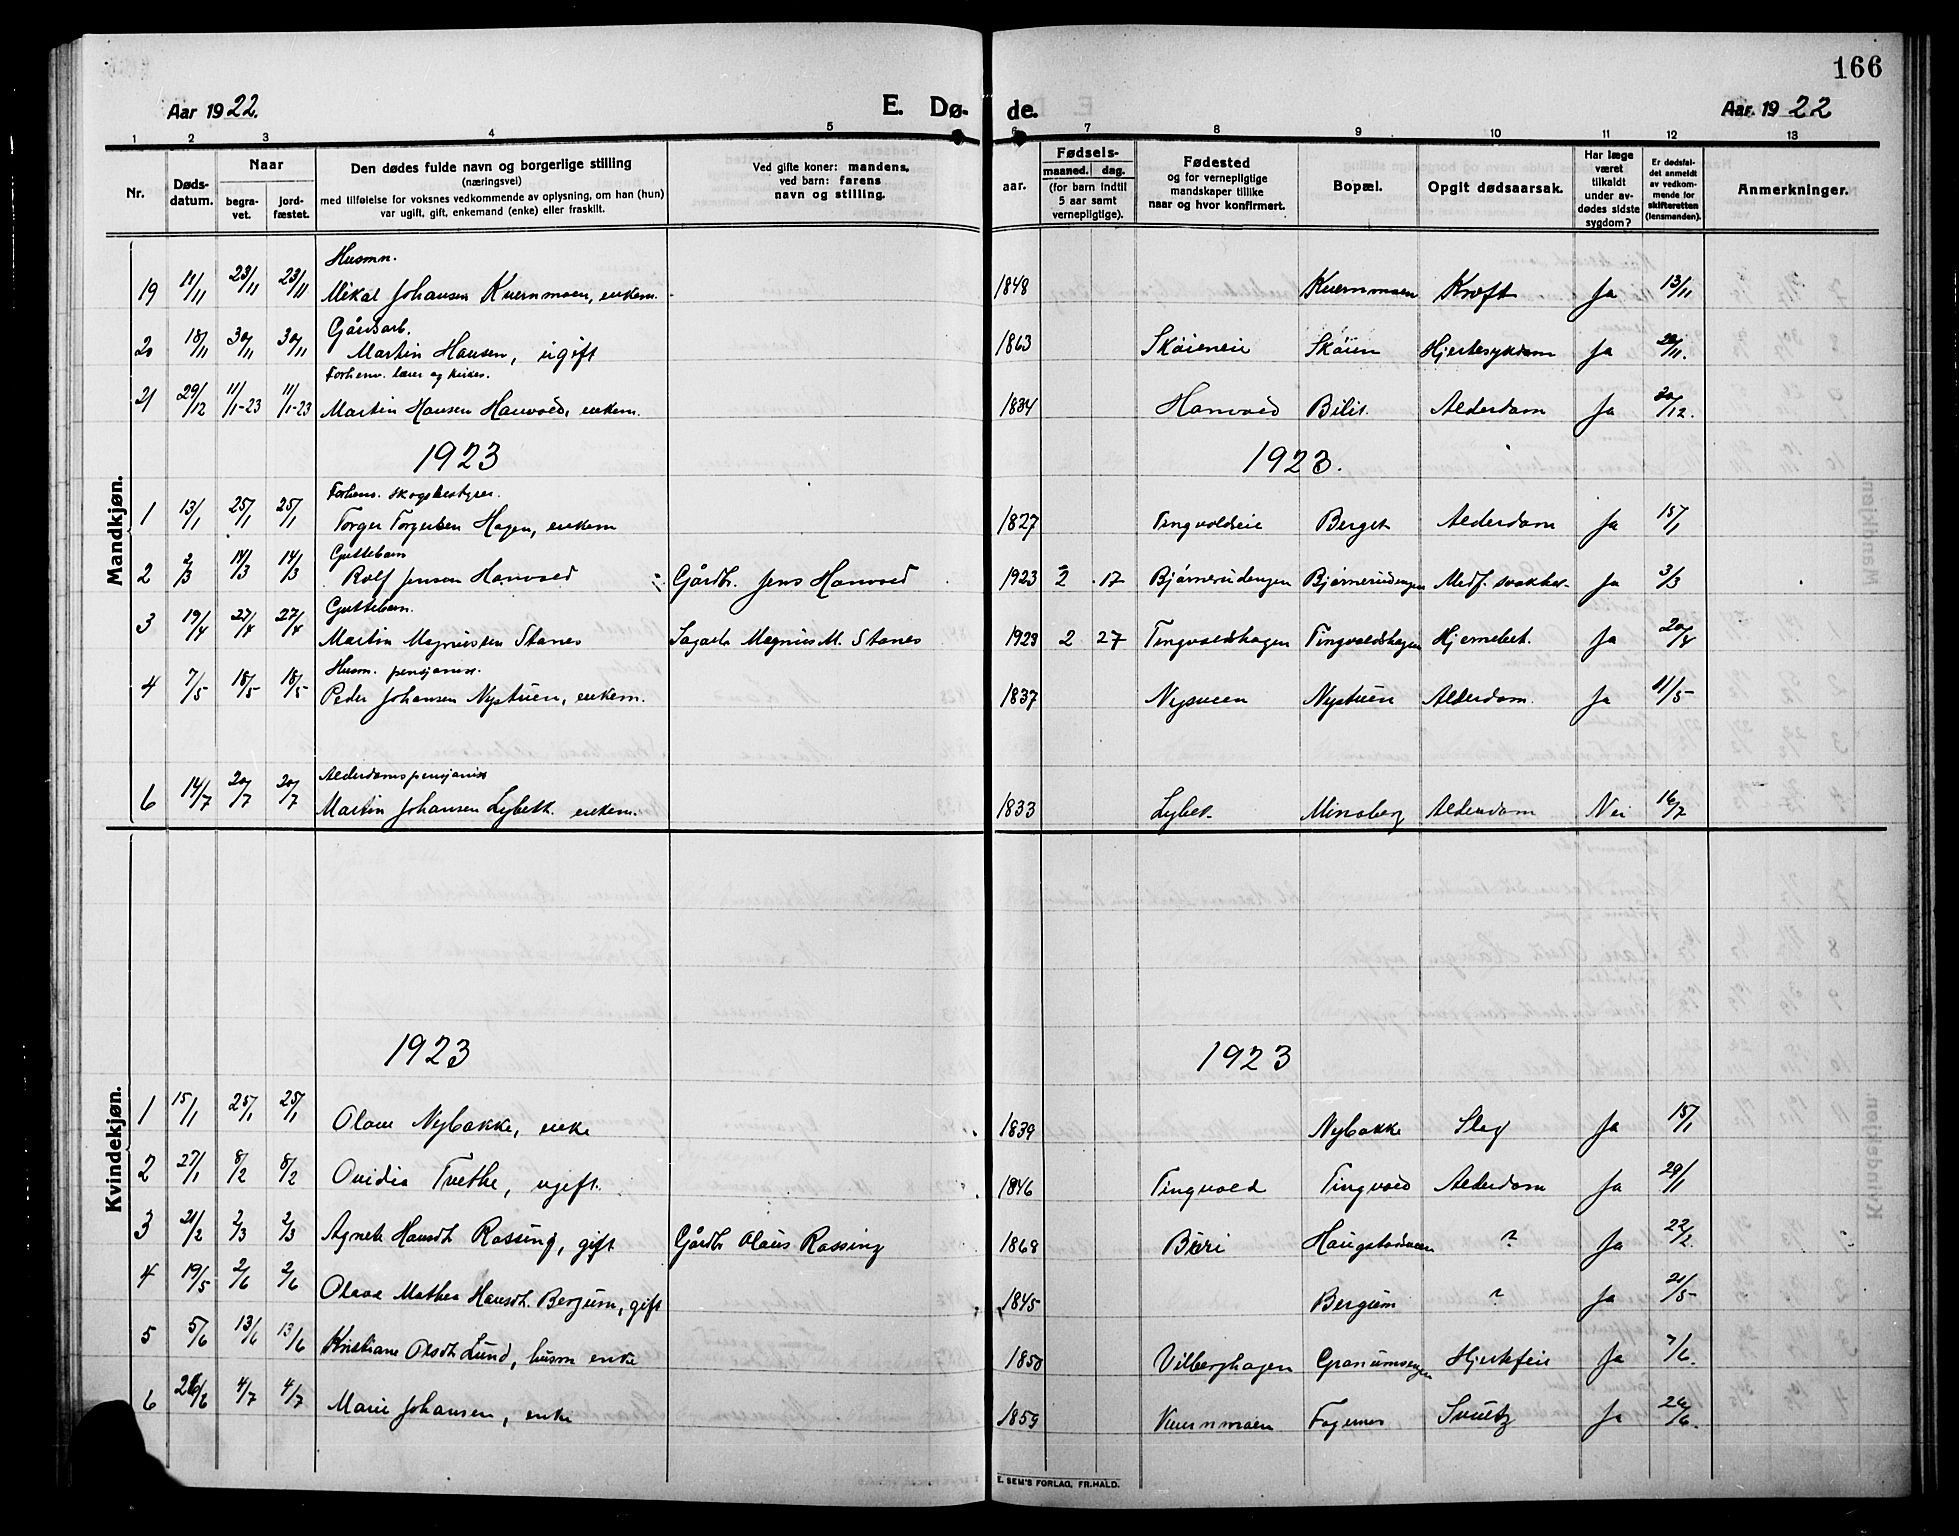 166
Aar 1922. E. Dø- de. Aar 1922
1 2 3 4 5 6 7 8 9 10 11 12 13
Nr. Døds-datum. Naar begra-vet. jord-fæstet. Den dødes fulde navn og borgerlige stilling (næringsvei) med tilføielse for voksnes vedkommende av oplysning, om han (hun) var ugift, gift, enkemand (enke) eller fraskilt. Ved gifte koner: mandens, ved barn: farens navn og stilling. Fødsels- aar. maaned. dag. (for barn indtil 5 aar samt vernepligtige). Fødested og for vernepligtige mandskaper tillike naar og hvor konfirmert. Bopæl. Opgit dødsaarsak. Har læge været tilkaldt under av-dødes sidste sygdom? Er dødsfal-det anmeldt av vedkom-mende for skifteretten (lensmanden). Anmerkninger.
Mandkjøn.
Husmn.
19 11/11 23/11 23/11 Mikal Johansen Kvernmoen, enkem. 1848 Kvernmoen Kræft Ja 13/11
Gårdsarb.
20 18/11 30/11 30/11 Martin Hansen, ugift 1863 Skøieneie Skøien Hjertesykdom Ja 20/11.
Forhenv. lærer og kirkes.
21 29/12 11/1-23 11/1-23 Martin Hansen Hanvold, enkem. 1834 Hanvold Bilit Alderdom Ja 30/12.
1923 1923.
Forhenv. skogbestyrer.
1 13/1 25/1 25/1 Torger Torgersen Hagen, enkem 1827 Tingvoldseie Berget Alderdom Ja 15/1
Guttebarn
2 2/3 14/3 14/3 Rolf Jensen Hanvold Gårdbr. Jens Hanvold 1923 2 17 Bjørnerudengen Bjørnerudengen Medf. svakhet Ja 3/3
Guttebarn.
3 19/4 27/4 27/4 Martin Magnussen Stanes Sagarb. Magnus M. Stanes 1923 2 27 Tingvoldshagen Tingvoldshagen Hjernebet. Ja 20/4
Husm. pensjonist.
4 7/5 18/5 18/5 Peder Johansen Nystuen, enkem. 1837 Nysveen Nystuen Alderdom. Ja 11/5
Alderdomspensjonist
6 14/7 20/7 20/7 Martin Johansen Lybeth. enkem. 1833 Lybet. Minsberg Alderdom Nei 16/7
Kvindekjøn.
1923 1923
1 15/1 25/1 25/1 Olave Nybakke, enke 1839 Nybakke Slag Ja 15/1
2 27/1 8/2 8/2 Ovidia Tvethe, ugift. 1846 Tingvold Tingvold Alderdom Ja 29/1
3 21/2 2/3 2/3 Agnete Hansdt. Rossing, gift Gårdbr Olaus Rossing 1868 Biri Haugstadveen ? Ja 22/2.
4 19/5 2/6 2/6 Olava Mathea Hansdt. Bergum, gift 1845 Bergum ? Ja 21/5
5 5/6 13/6 13/6 Kristiane Olsdt. Lund, husm enke 1850 Vilberghagen Granumsengen Hjertefeil Ja 7/6.
6 26/6 4/7 4/7 Marie Johansen, enke 1859 Kvernmoen Fagernes Ja 26/6.
E. SEM'S FORLAG, FR.HALD.